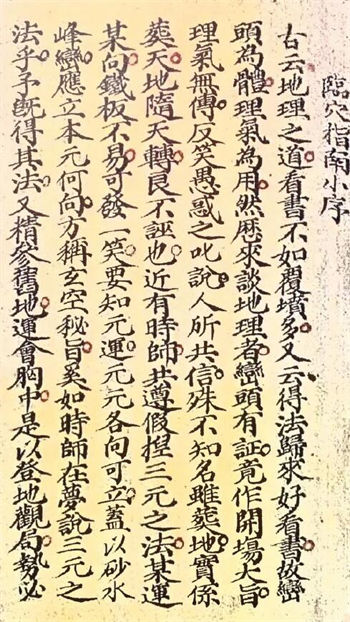 臨穴指南小序
古云地理之道看書不如覆墳多又云得法歸來好看書故巒
頭為體理氣為用然歷來談地理者巒頭有証竟作開場大旨
理氣無傳反笑愚惑之叱說人所共信殊不知名雖葬地實係
葬天地隨天轉良不誣也近有時師共尊假揑三元之法某運
某向鐵板不易可發一笑要知元運元元各向可立蓋以砂水
峰巒應立本元何向方稱玄空秘旨奚如時師在夢說三元之
法乎予既得其法又精參舊地運會胸中是以登地觀局勢必